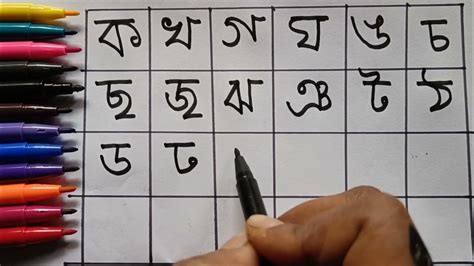 ক খ গ ঘ ঙ চ
ছ জ ঝ ঞ ট ঠ
ড ঢ